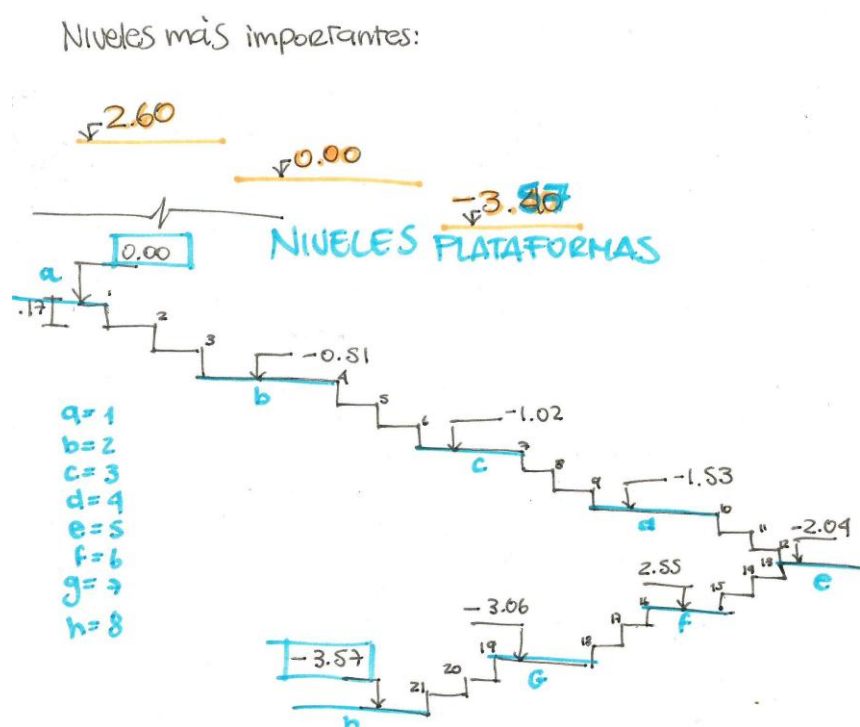 Niveles más importantes:
2.60
0.00
-3.57
NIVELES PLATAFORMAS
0.00
a
.17
1
2
3
-0.51
b
4
5
6
-1.02
c
7
8
9
-1.53
d
10
11
12
-2.04
e
13
14
15
2.55
f
16
17
18
-3.06
G
19
20
21
-3.57
h
a=1
b=2
c=3
d=4
e=5
f=6
g=7
h=8